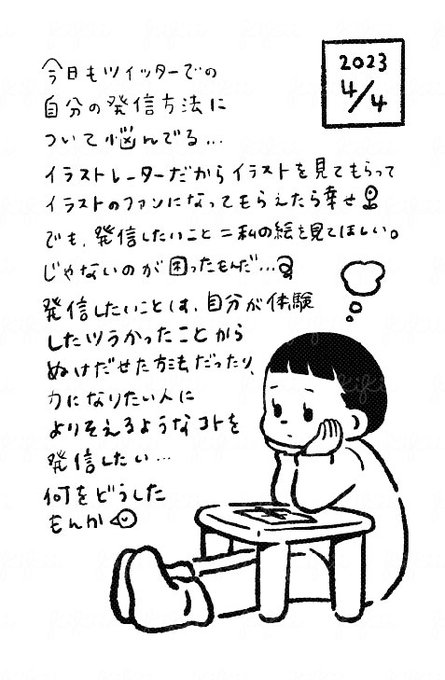 2023
4/4
今日もツイッターでの
自分の発信方法に
ついて悩んでる...
イラストレーターだからイラストを見てもらって
イラストのファンになってもらえたら幸せ
でも、発信したいこと=私の絵を見てほしい。
じゃないのが困ったもんだ...
発信したいことは、自分が体験
したツラかったことから
ぬけだせた方法だったり、
力になりたい人に
よりそえるようなコトを
発信したい...
何をどうした
もんか